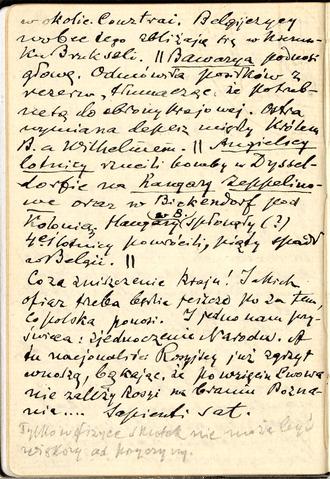 w okolice Courtrai. Belgijczycy
wobec tego zbliżają się w kierun-
ku Brukseli. || Bawarya podnosi
głowę. Odmówiła posiłków z
rezerw, tłumacząc, że potrzeb-
ne są do obrony krajowej. Ostra
wymiana depesz między Królem
B. a Wilhelmem. || Angielscy
lotnicy rzucili bomby w Dyssel-
dorfie na Hangary Zeppelino-
we oraz w Bickendorf pod
Kolonią. Hangary w B. spłonęły (?)
4 ej lotnicy powrócili, piąty spadł
w Belgii. ||
Co za zniszczenie kraju! Jakich
ofiar trzeba będzie jeszcze poza tem,
co polska ponosi. I jedno nam przy-
świeca: zjednoczenie Narodu. A
tu nacjonaliści Rosyjscy już zgrzyt
wnoszą, bąkając, że po wzięciu Lwowa
nie zależy Rosyi na braniu Pozna-
nia.... Sapienti sat.
Tylko w fizyce skutek nie może być
większy od przyczyny.